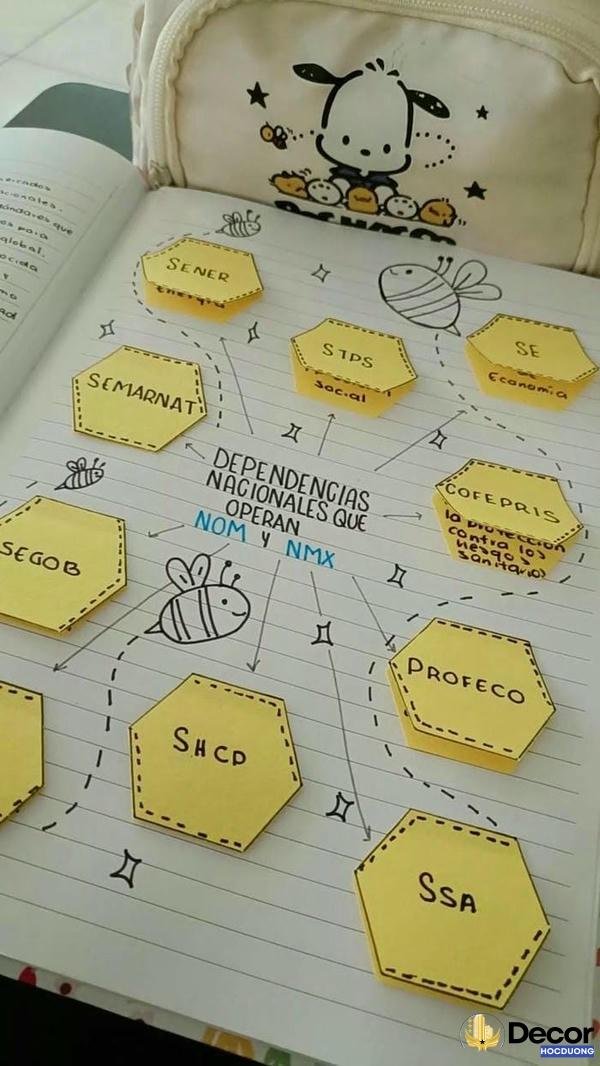 ercados
acionales.
ándares que
os para
global.
ocida
y
mo
ad
SENER
Energía
STPS
Social
SE
Economía
SEMARNAT
DEPENDENCIAS
NACIONALES QUE
OPERAN
NOM y NMX
COFEPRIS
la protección
contra los
riesgos
sanitarios
SEGOB
PROFECO
SHCP
SSA
Decor
HOCDUONG